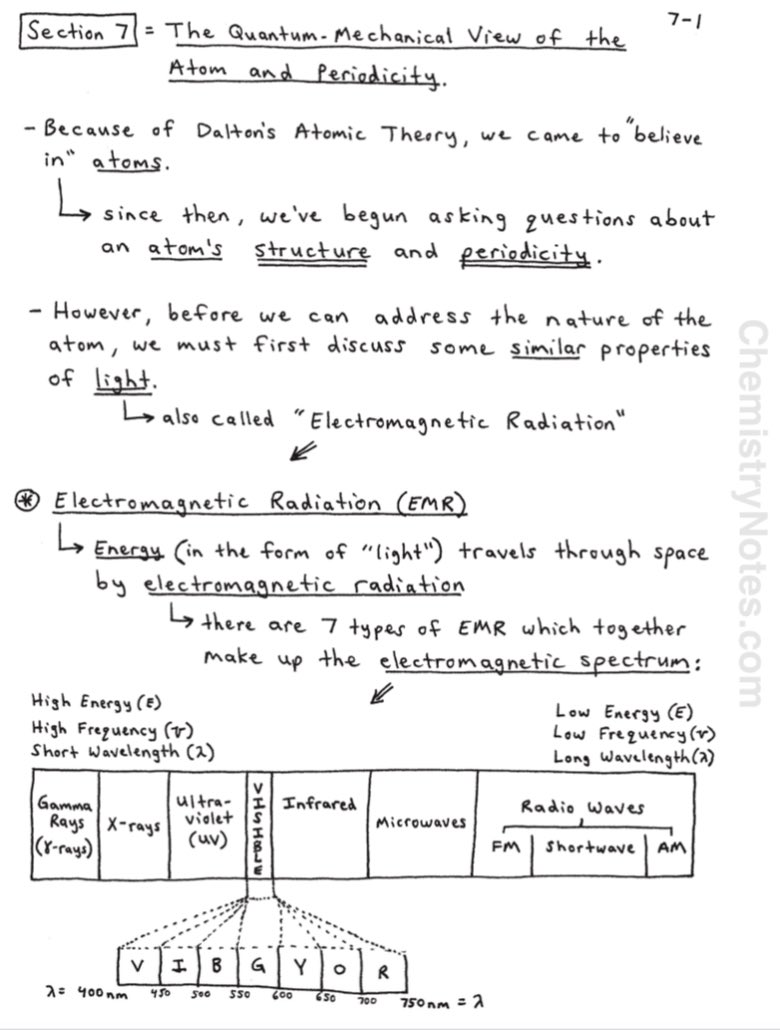 7-1
Section 7 = The Quantum-Mechanical View of the
Atom and Periodicity.
- Because of Dalton's Atomic Theory, we came to "believe
in" atoms.
↳ since then, we've begun asking questions about
an atom's structure and periodicity.
- However, before we can address the nature of the
atom, we must first discuss some similar properties
of light.
↳ also called "Electromagnetic Radiation"
⊛ Electromagnetic Radiation (EMR)
↳ Energy (in the form of "light") travels through space
by electromagnetic radiation
↳ there are 7 types of EMR which together
make up the electromagnetic spectrum:
High Energy (E)
High Frequency (ν)
Short Wavelength (λ)
Low Energy (E)
Low Frequency (ν)
Long Wavelength (λ)
Gamma
Rays
(γ-rays)
X-rays
Ultra-
violet
(UV)
VISIBLE
Infrared
Microwaves
Radio Waves
FM Shortwave AM
V I B G Y O R
λ = 400nm 450 500 550 600 650 700 750nm = λ
ChemistryNotes.com